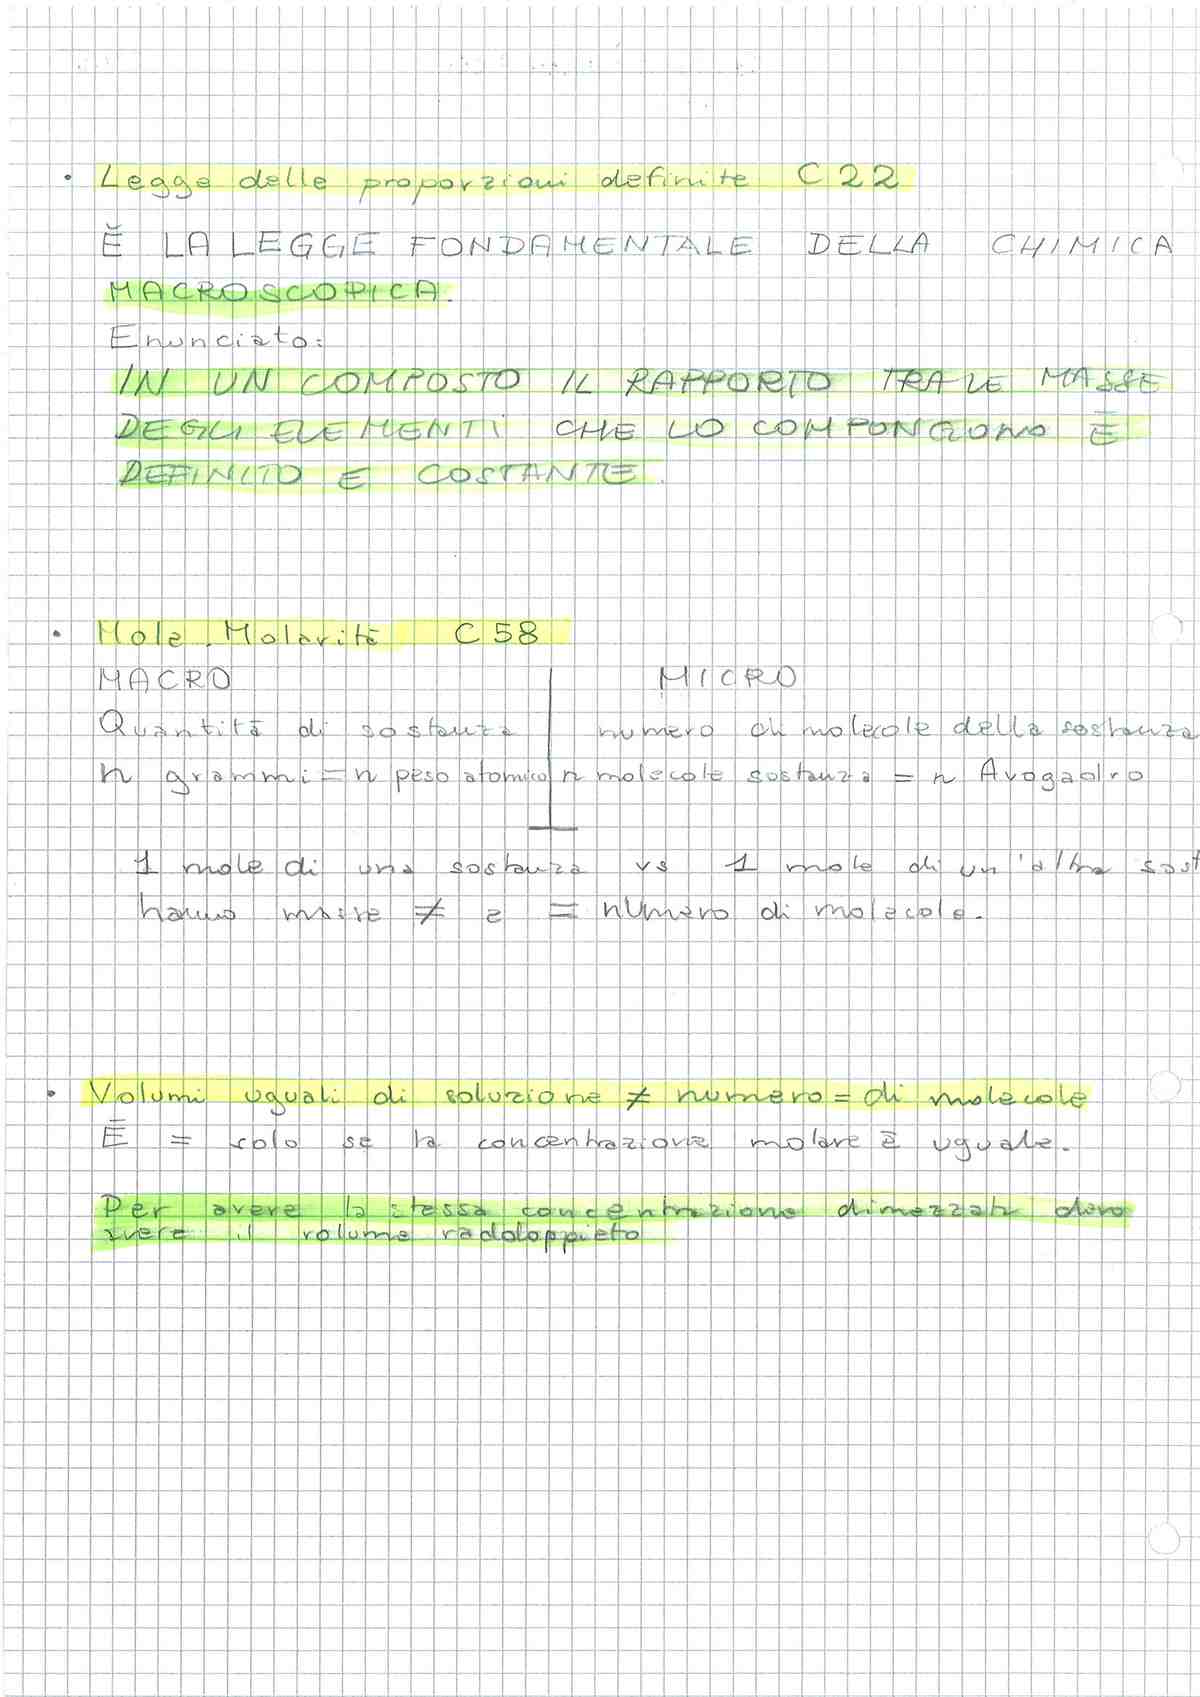 • Legge delle proporzioni definite C22
È LA LEGGE FONDAMENTALE DELLA CHIMICA
MACROSCOPICA.
Enunciato:
IN UN COMPOSTO IL RAPPORTO TRA LE MASSE
DEGLI ELEMENTI CHE LO COMPONGONO È
DEFINITO E COSTANTE.
• Mole. Molarità C58
MACRO MICRO
Quantità di sostanza numero di molecole della sostanza
n grammi = n peso atomico n molecole sostanza = n Avogadro
1 mole di una sostanza vs 1 mole di un'altra sost
hanno masse ≠ e = numero di molecole.
• Volumi uguali di soluzione ≠ numero = di molecole
È = solo se la concentrazione molare è uguale.
Per avere la stessa concentrazione dimezzata devo
avere il volume raddoppiato